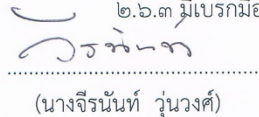 ๒.๖.๓ มีเบรกมือ
(นางจีรนันท์ วุ่นวงศ์)